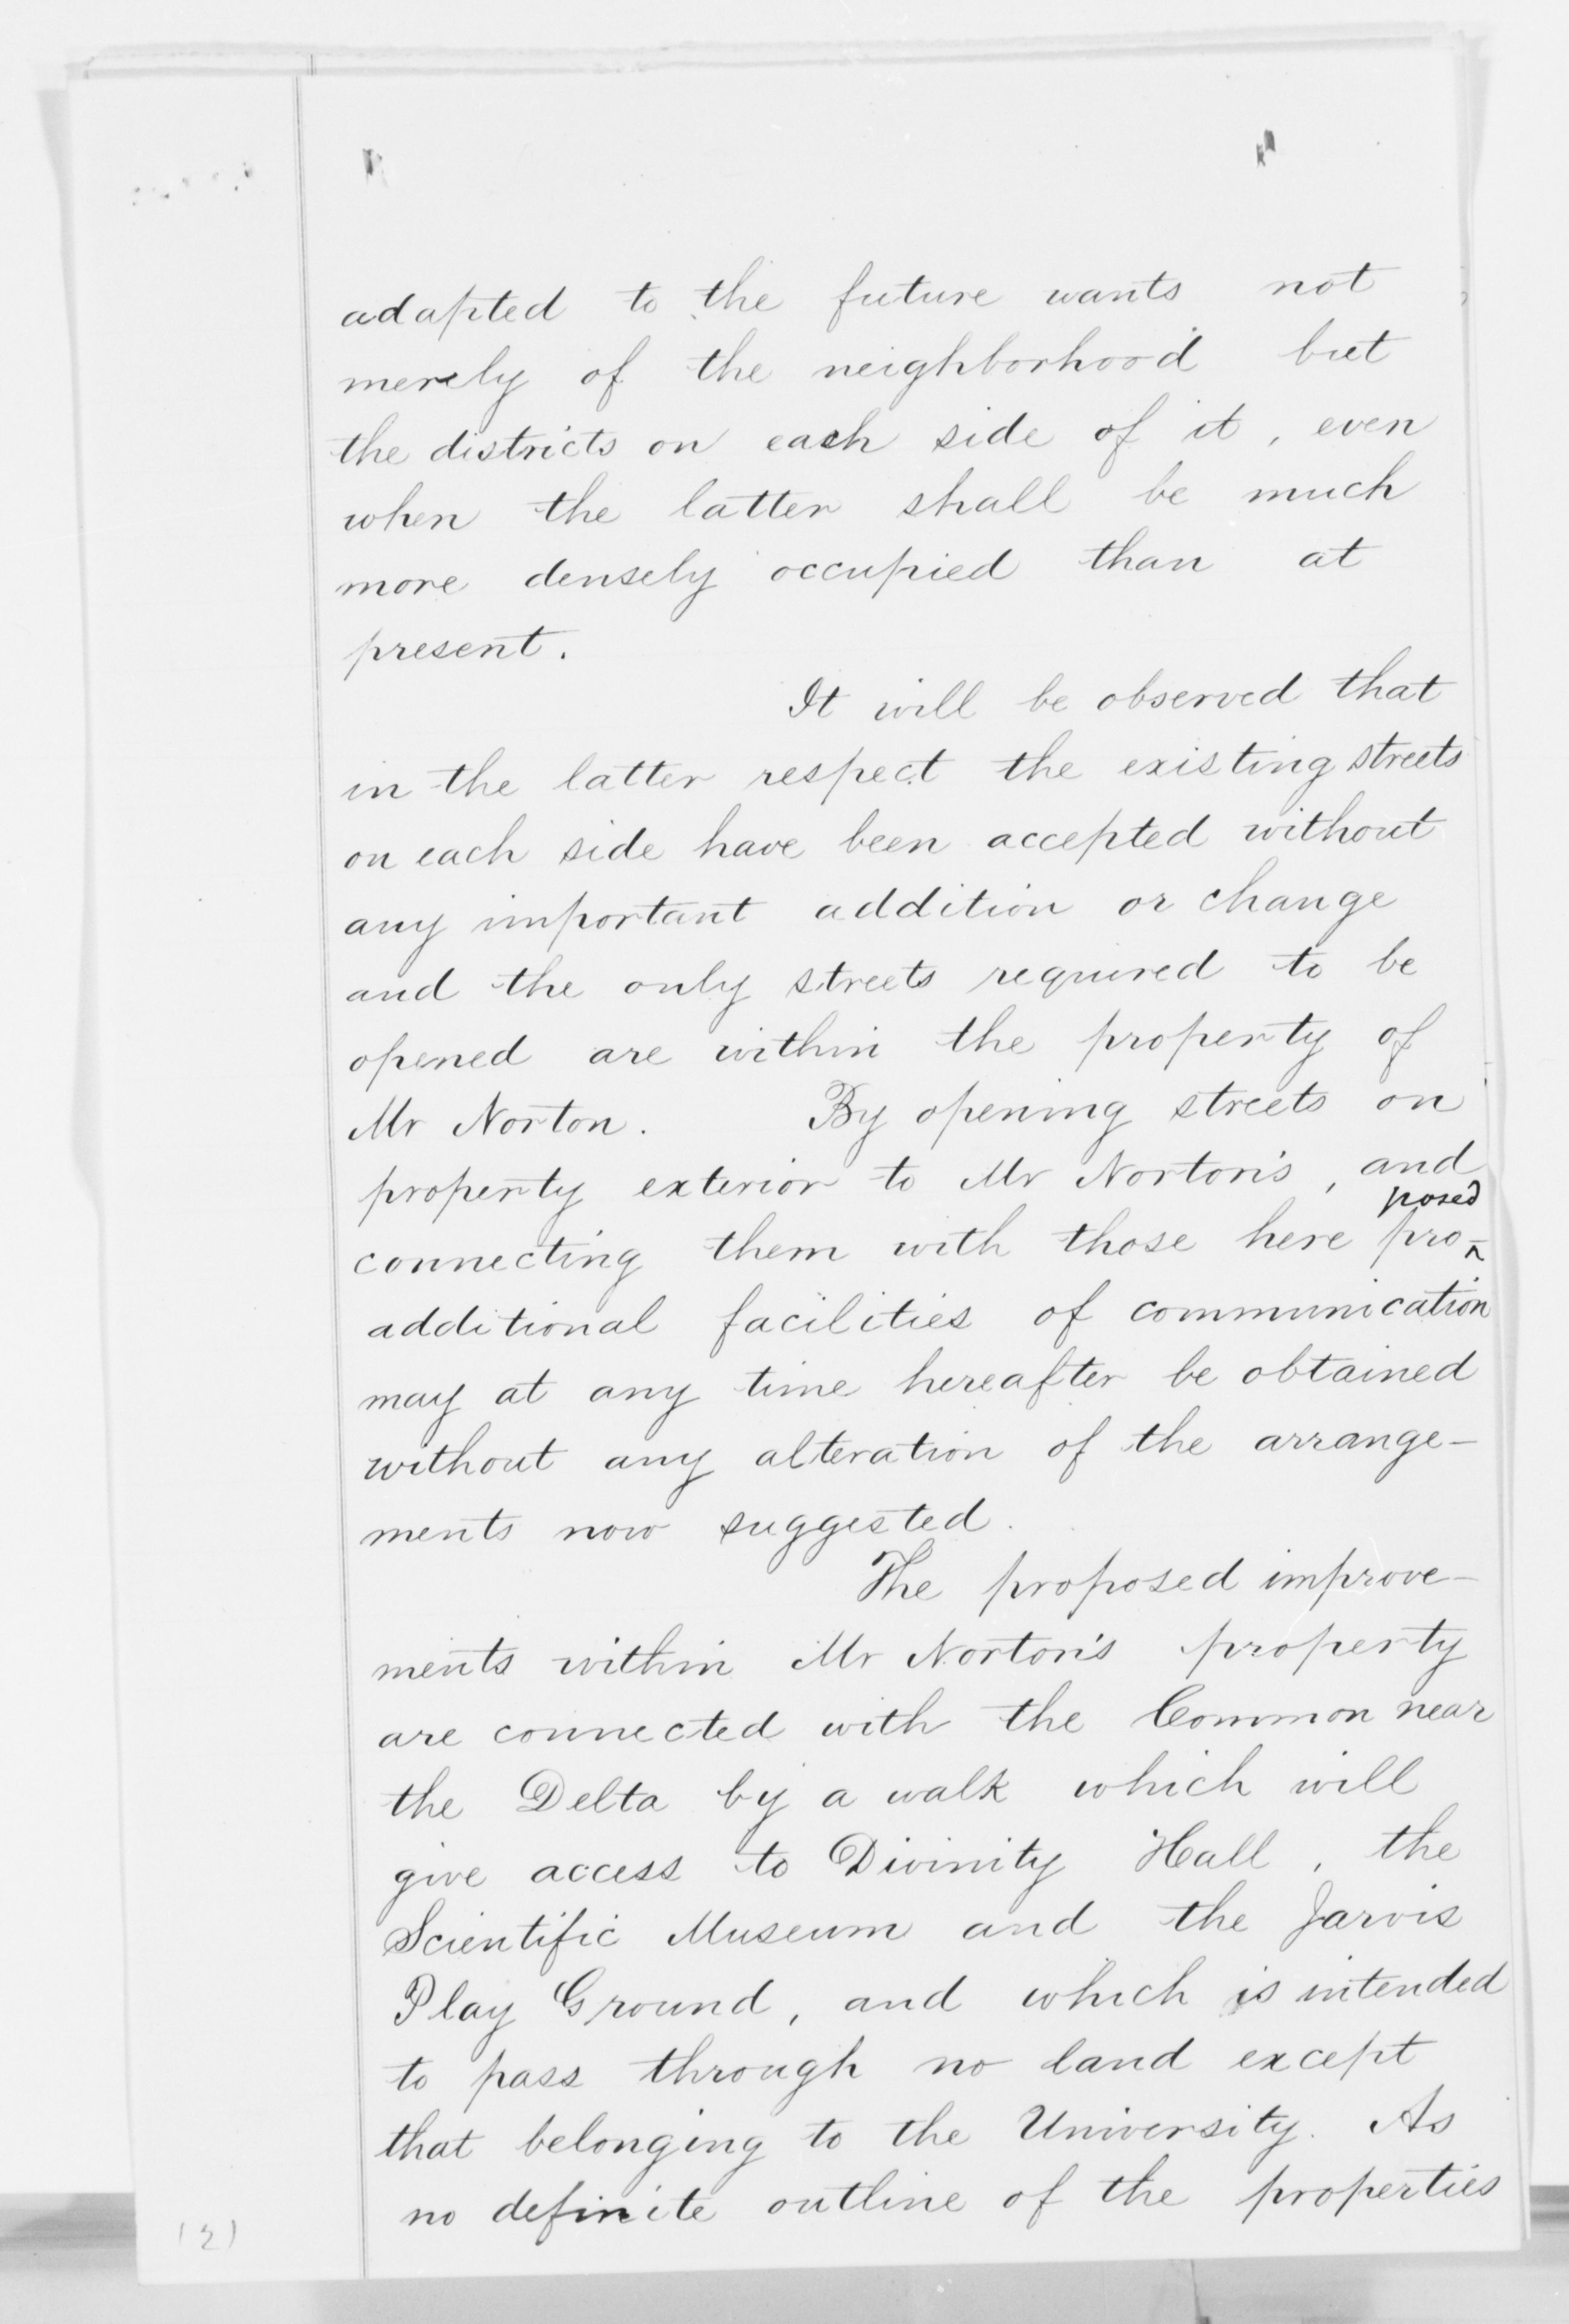 adapted to the future wants not
merely of the neighborhood but
the districts on each side of it, even
when the latter shall be much
more densely occupied than at
present.
It will be observed that
in the latter respect the existing streets
on each side have been accepted without
any important addition or change
and the only streets required to be
opened are within the property of
Mr Norton. By opening streets on
property exterior to Mr Norton's, and
posed
connecting them with those here pro-^
additional facilities of communication
may at any time hereafter be obtained
without any alteration of the arrange-
ments now suggested.
The proposed improve-
ments within Mr Norton's property
are connected with the Common near
the Delta by a walk which will
give access to Divinity Hall, the
Scientific Museum and the Jarvis
Play Ground, and which is intended
to pass through no land except
that belonging to the University. As
no definite outline of the properties
(2)